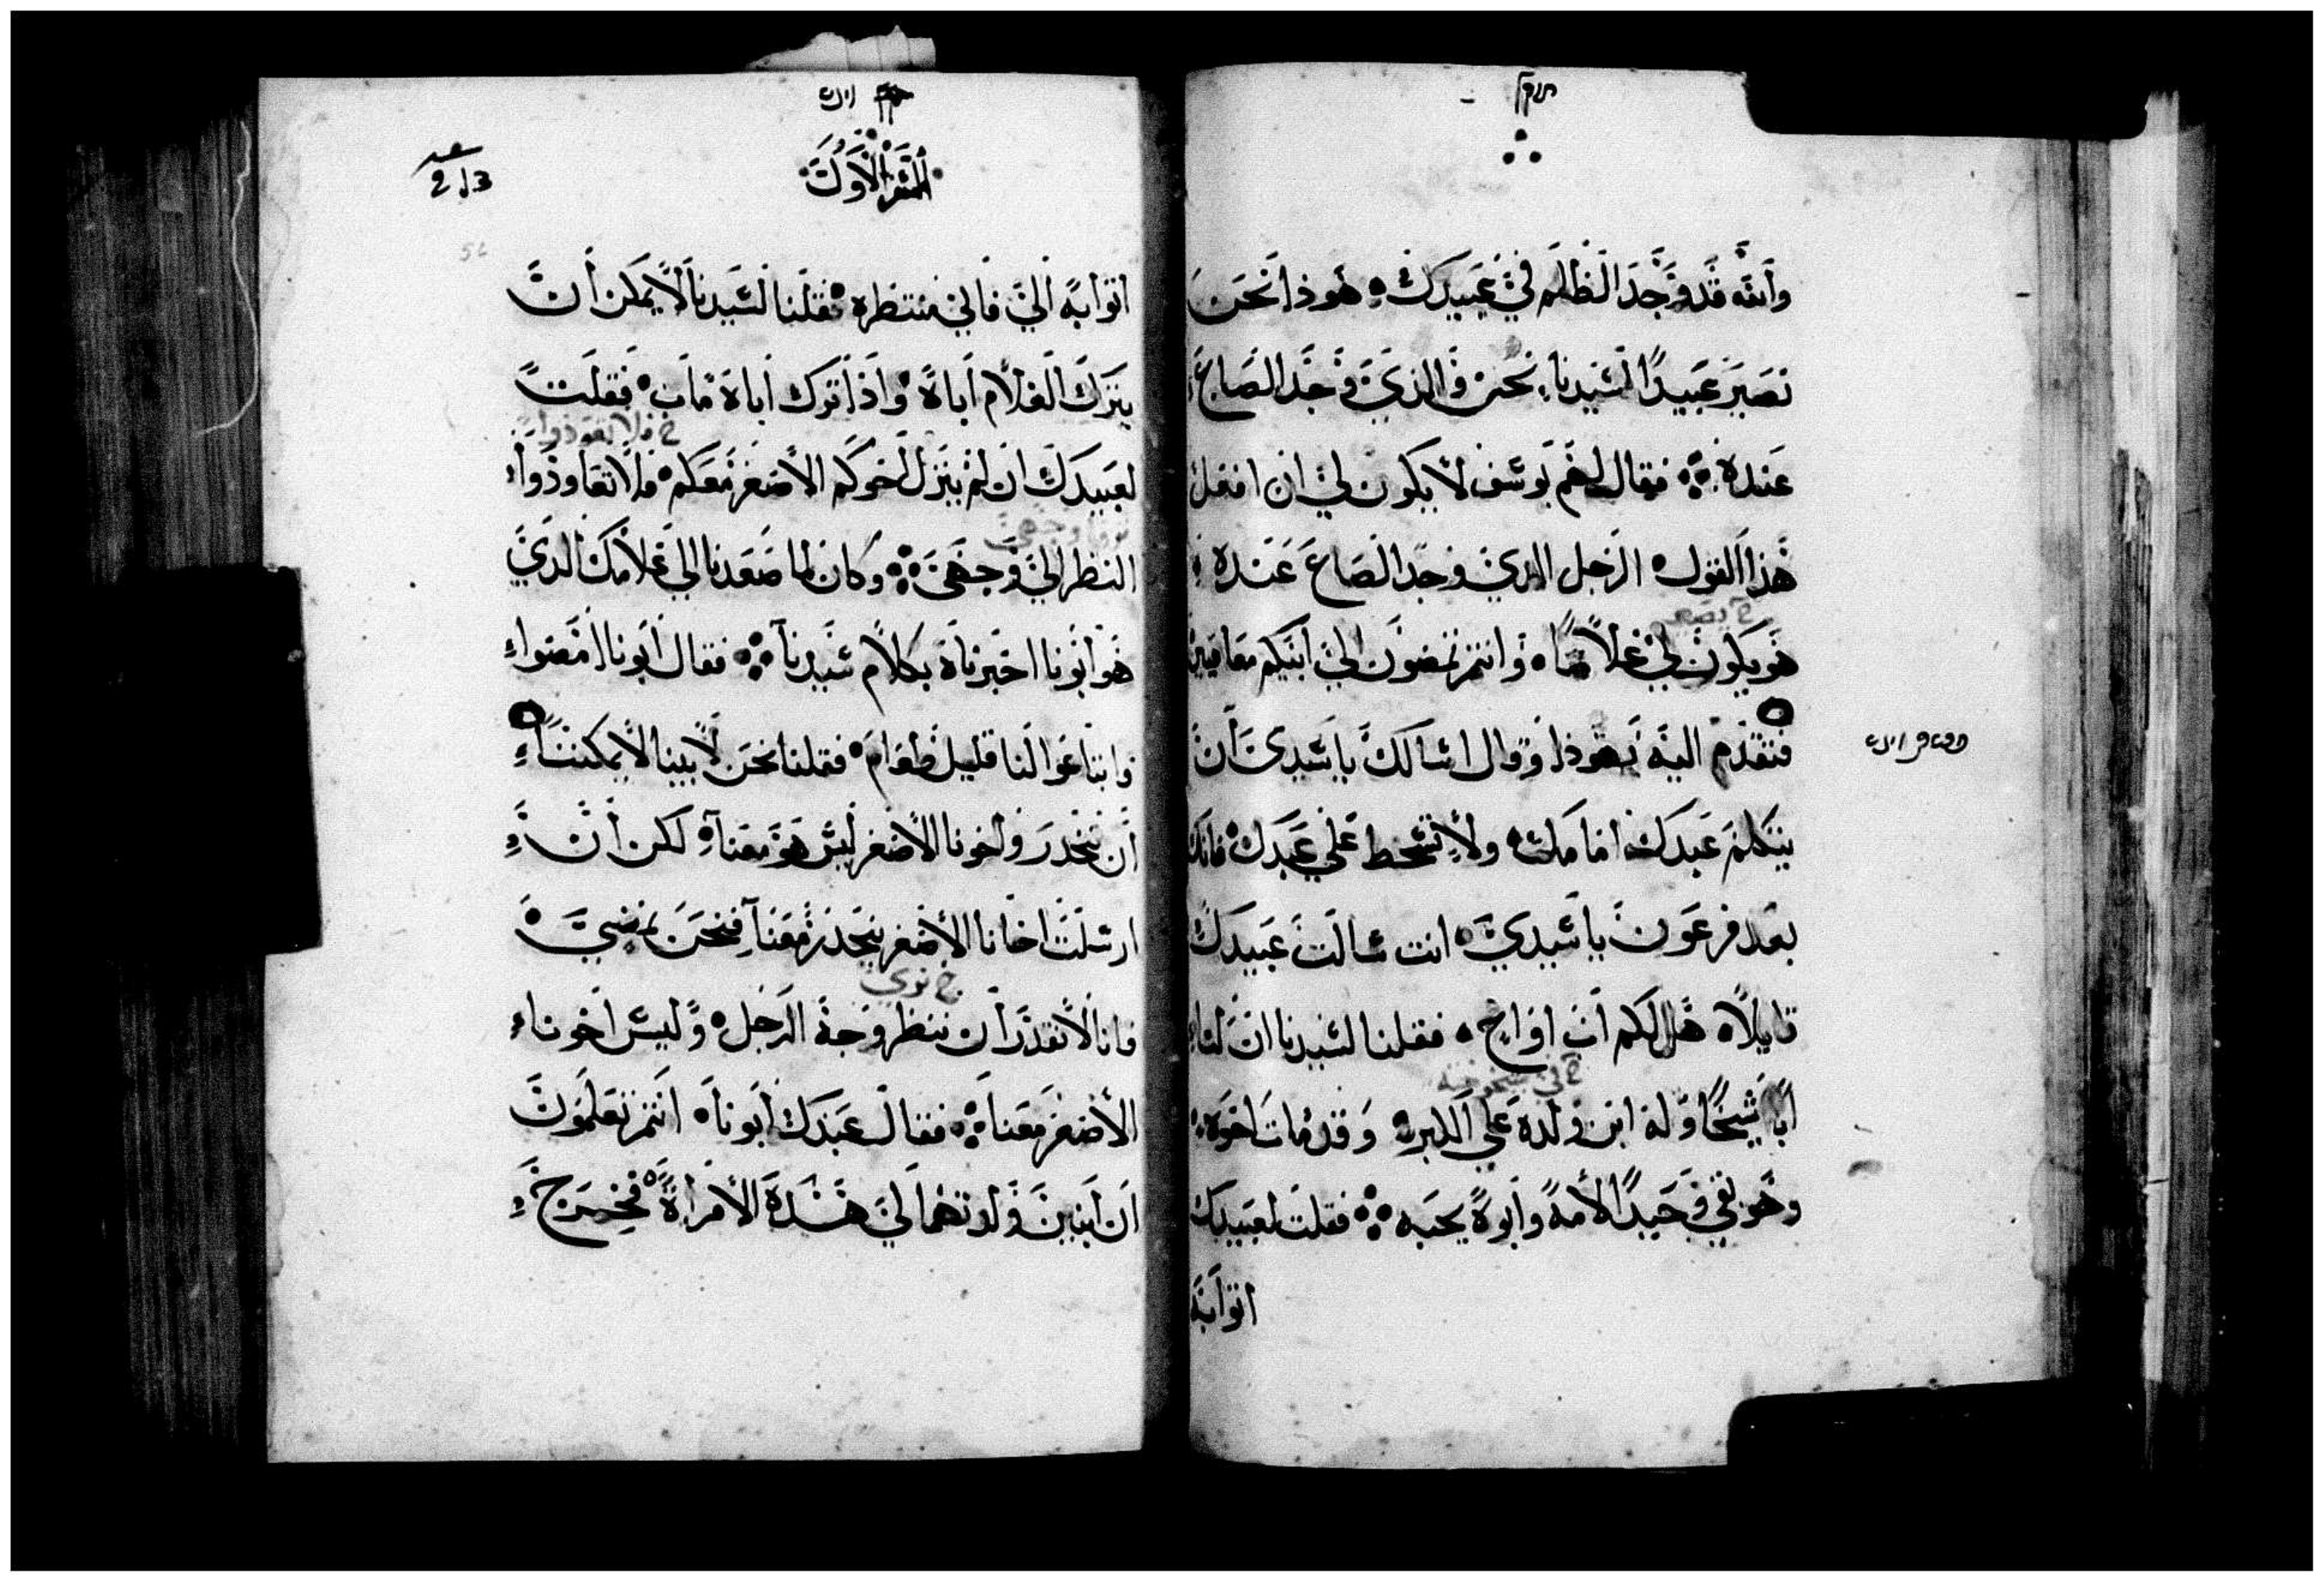 والله قد وجد الظلم في عبيدك هوذا نحن
نصير عبيدًا لسيدنا نحن والذي وجد الصاع
عنده فقال لهم يوسف لا يكون لي ان افعل
هذا القول الرجل الذي وجد الصاع عنده
خ يصير
هو يكون لي غلامًا وانتم تمضون الي ابيكم معافين
فتقدم اليه يهوذا وقال اسالك يا سيدي ان
يتكلم عبدك امامك ولا تسخط علي عبدك فانك
بعد فرعون يا سيدي انت سالت عبيدك
قايلاً هل لكم اب او اخ فقلنا لسيدنا ان لنا
خ في شيخوخته
ابًا شيخًا وله ابن ولده علي الكبر وقد مات اخوه
وهو بقي وحيدًا لامه وابوه يحبه فقلت لعبيدك
اتوا به
السفر الاول
اتوا به الي فاني منتظره فقلنا لسيدنا لا يمكن ان
يترك الغلام اباه واذا ترك اباه مات فقلت
خ فلا تعودوا
لعبيدك ان لم ينزل اخوكم الاصغر معكم فلا تعاودوا
النظر الي وجهي وكان لما صعدنا الي غلامك الذي
هو ابونا اخبرناه بكلام سيدنا فقال ابونا امضوا
وابتاعوا لنا قليل طعام فقلنا نحن لابينا لا يمكننا
ان ننحدر واخونا الاصغر ليس هو معنا لكن ان
ارسلت اخانا الاصغر ينحدر معنا فنحن نمضي
خ نري
فانا لا نقدر ان ننظر وجه الرجل وليس اخونا
الاصغر معنا فقال عبدك ابونا انتم تعلمون
ان ابنين ولدتهما لي هذه الامراة فخرج